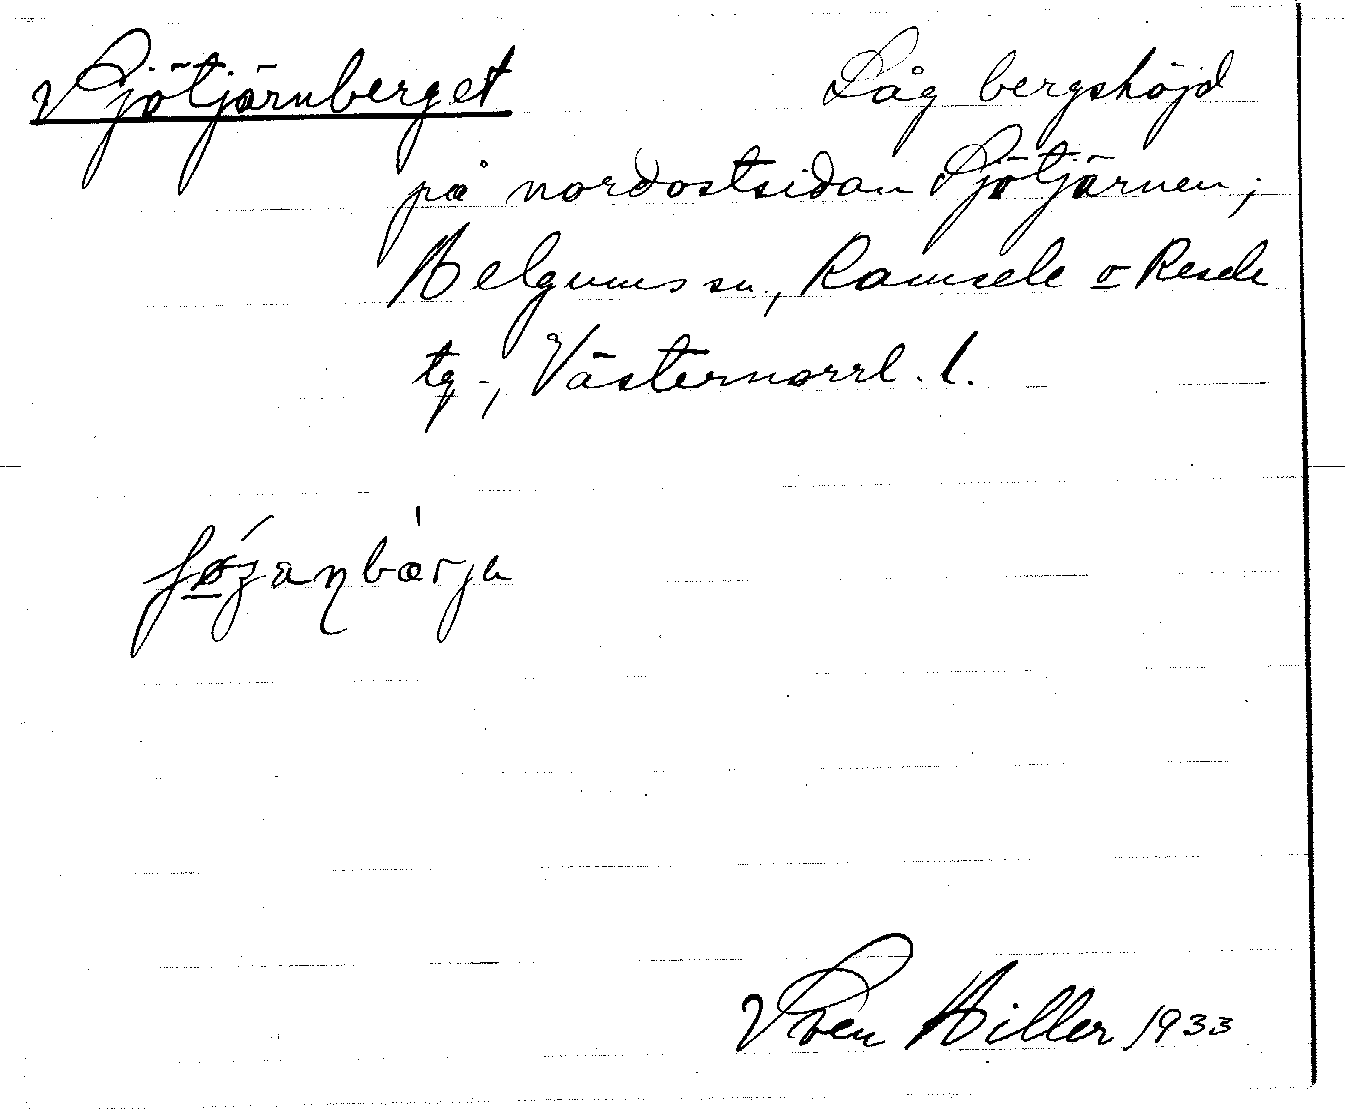 Sjötjärnberget Låg bergshöjd
på nordostsidan Sjötjärnen;
Helgums sn, Ramsele o Resele
tg., Västernorrl. l.
Sven Hiller 1933